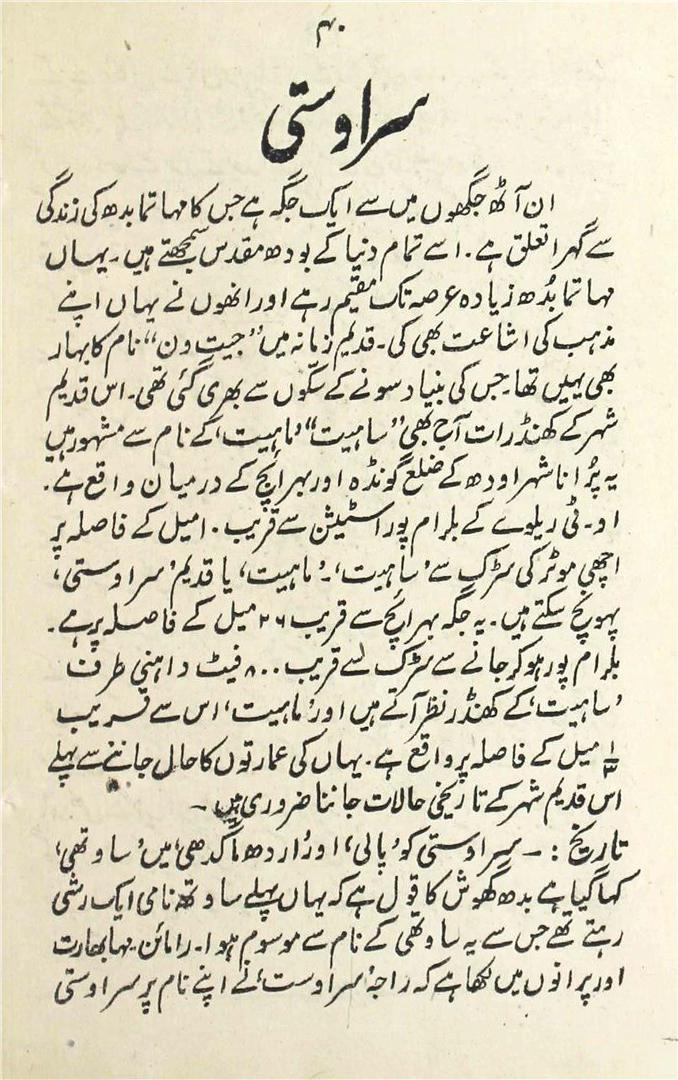 ۴۰
سراوستی
ان آٹھ جگھوں میں سے ایک جگہ ہے جس کا مہاتما بدھ کی زندگی
سے گہرا تعلق ہے۔ اسے تمام دنیا کے بودھ مقدس سمجھتے ہیں۔ یہاں
مہاتما بُدھ زیادہ عرصہ تک مقیم رہے اور انھوں نے یہاں اپنے
مذہب کی اشاعت بھی کی۔ قدیم زمانہ میں ”جیت ون“ نام کا بہار
بھی یہیں تھا۔ جس کی بنیاد سونے کے سکّوں سے بھری گئی تھی۔ اس قدیم
شہر کے کھنڈرات آج بھی ”ساہیت“ ’ماہیت‘ کے نام سے مشہور ہیں
یہ پُرانا شہر اودھ کے ضلع گونڈہ اور بہرائچ کے درمیان واقع ہے۔
او۔ ٹی ریلوے کے بلرام پور اسٹیشن سے قریب ۱۰ میل کے فاصلہ پر
اچھی موٹر کی سڑک سے ’ساہیت‘۔ ’ماہیت‘ یا قدیم ’سراوستی‘
پہونچ سکتے ہیں۔ یہ جگہ بہرائچ سے قریب ۲۶ میل کے فاصلہ پر ہے۔
بلرام پور ہو کر جانے سے سڑک سے قریب ۸۰۰ فیٹ داہنی طرف
’ساہیت‘ کے کھنڈر نظر آتے ہیں اور ’ماہیت‘ اس سے قریب
میل کے فاصلہ پر واقع ہے۔ یہاں کی عمارتوں کا حال جاننے سے پہلے
اس قدیم شہر کے تاریخی حالات جاننا ضروری ہیں۔
تاریخ :۔ سراوستی کو ’پالی‘ اور ’اردھ ماگدھی‘ میں ’ساوتھی‘
کہا گیا ہے بدھ گھوش کا قول ہے کہ یہاں پہلے ساوتھ نامی ایک رشی
رہتے تھے جس سے یہ ساوتھی کے نام سے موسوم ہوا۔ رامائن۔ مہابھارت
اور پرانوں میں لکھا ہے کہ راجہ ’سراوست‘ نے اپنے نام پر سراوستی